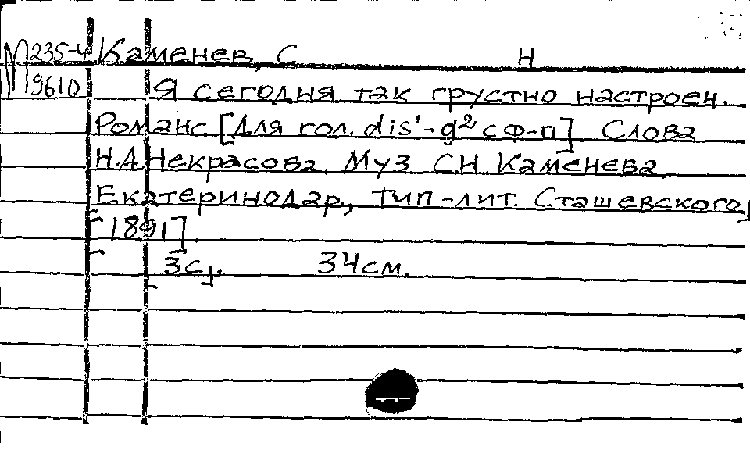 М 235-4 Каменев, С Н
9610 Я сегодня так грустно настроен.
Романс [Для гол. dis'-g² с ф-п] Слова
Н.А.Некрасова. Муз С.Н Каменева.
Екатеринодар, тип-лит. Сташевского,
[1891].
3с. 34см.